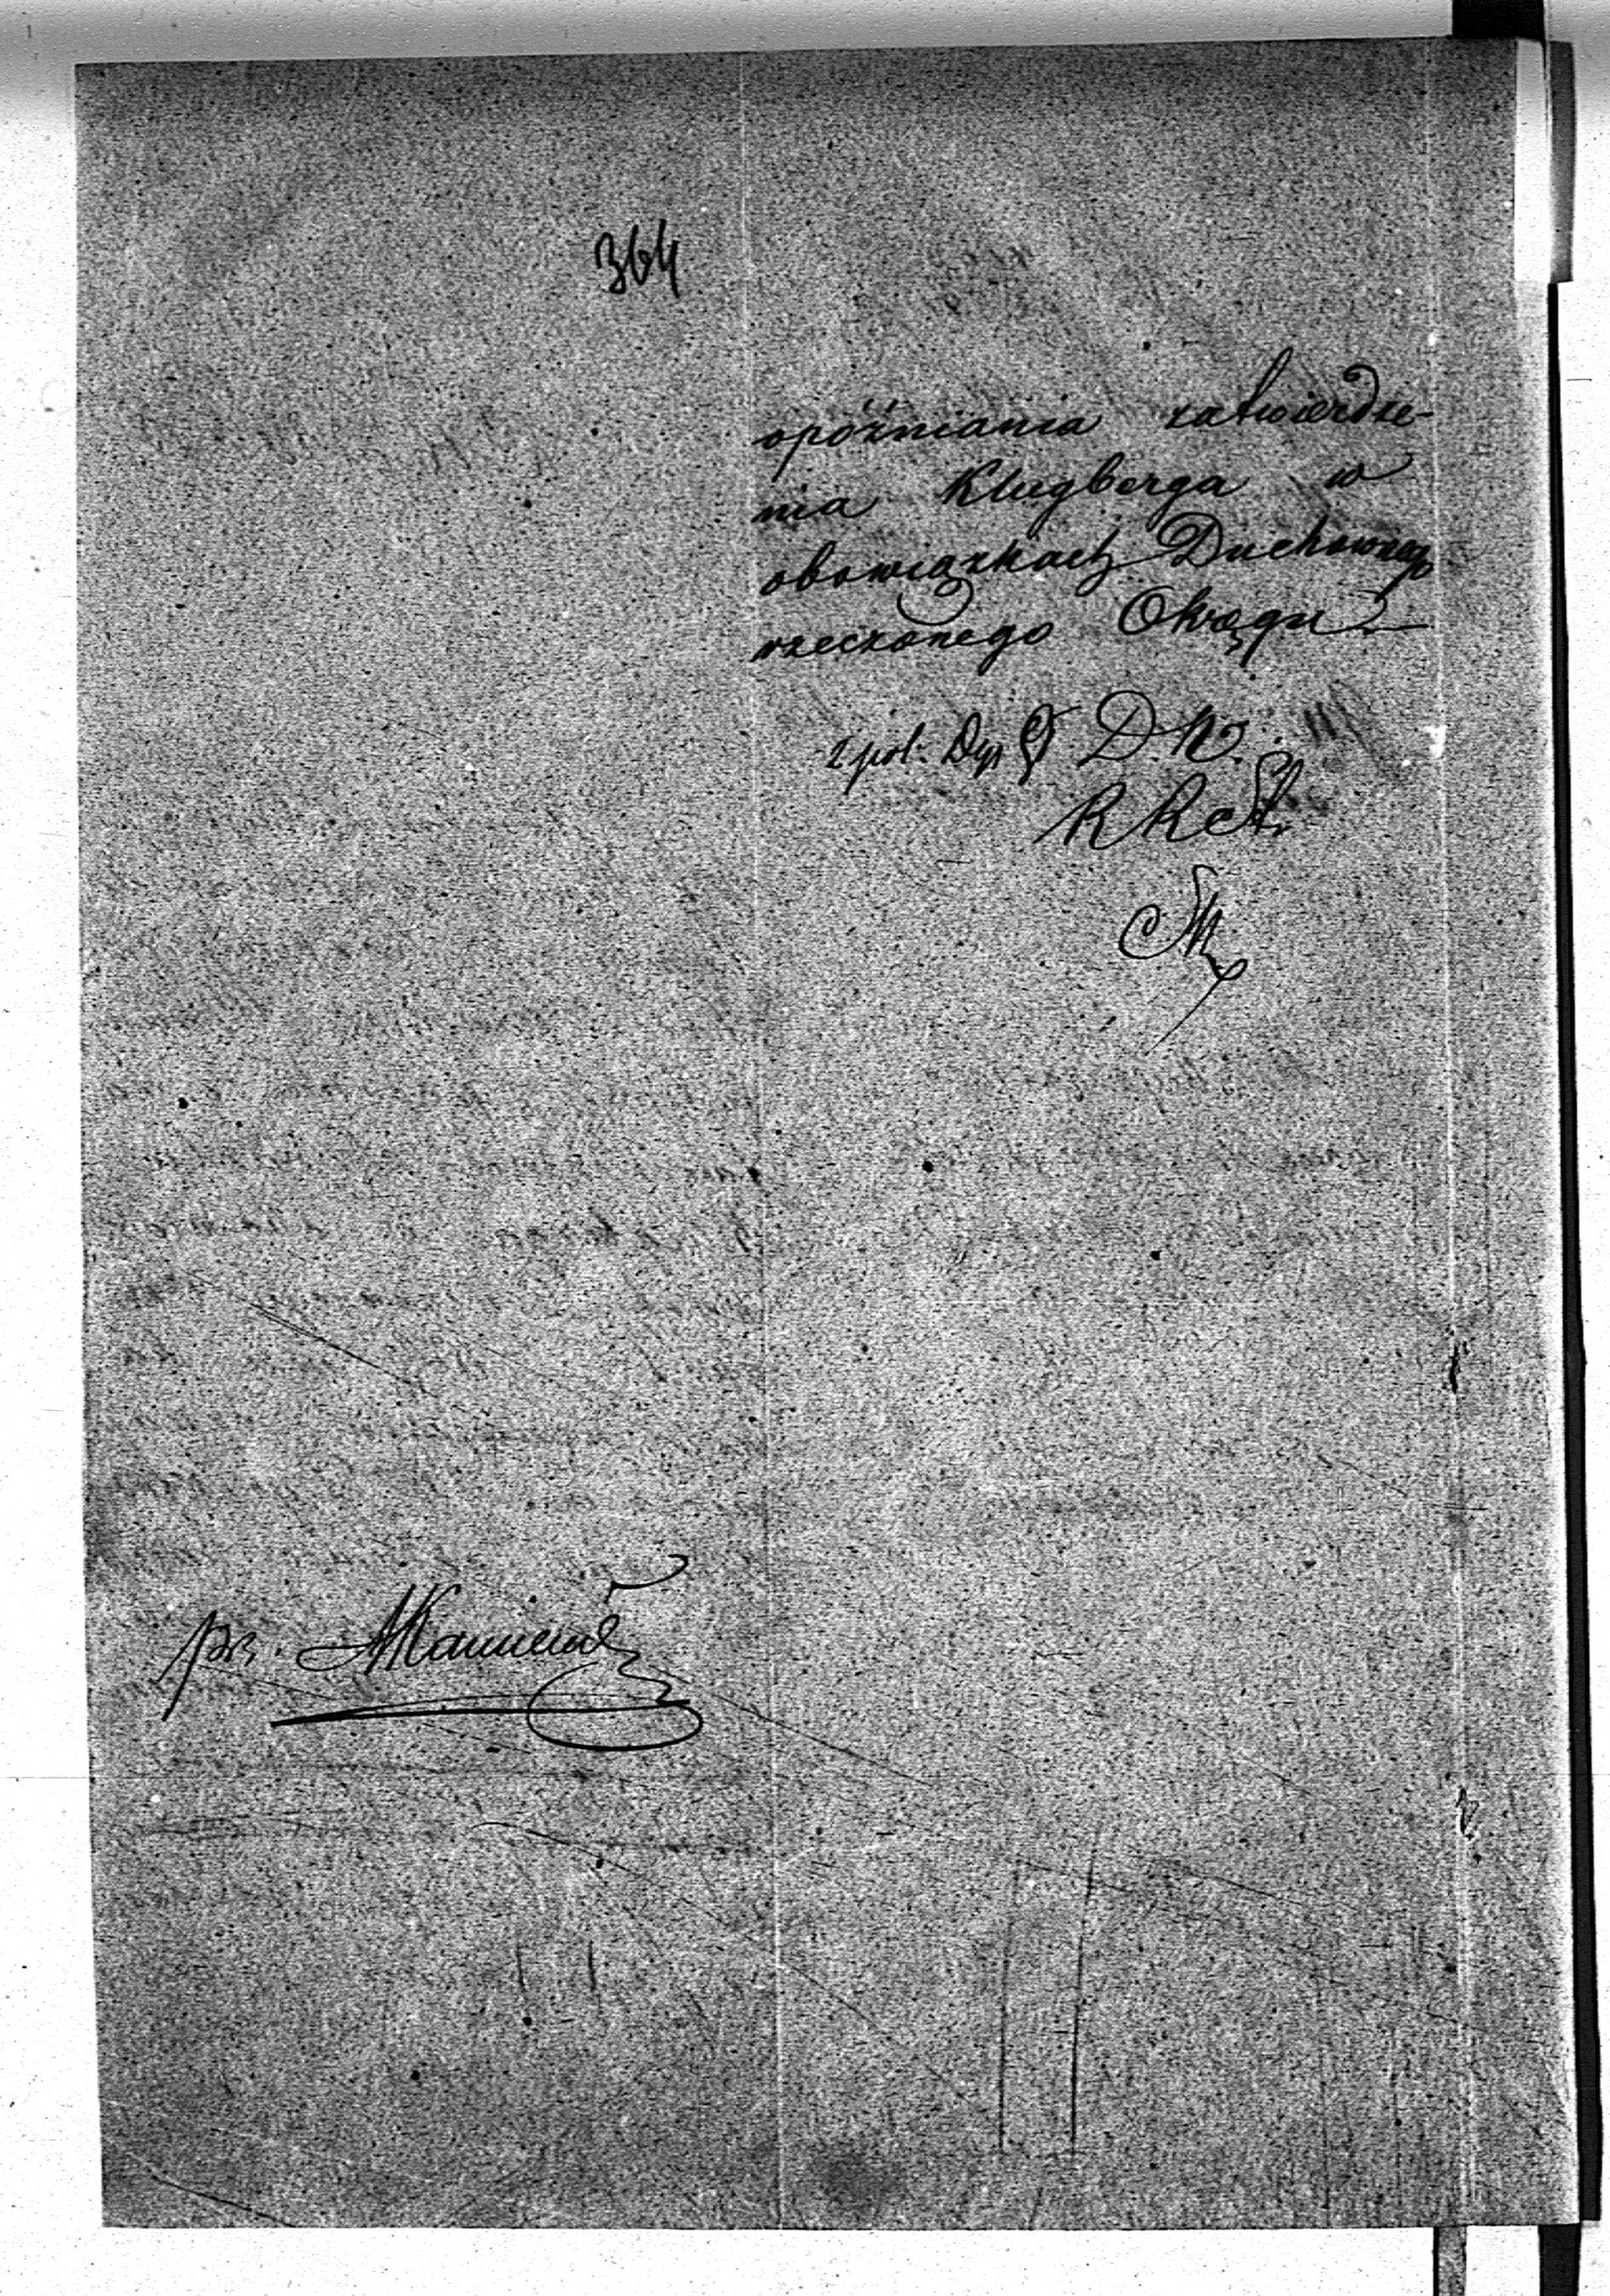 364
opóźniania zatwierdze-
nia Klugberga w
obowiązkach Duchownego
rzeczonego Okręgu
2 pol: Dyr D. W.
R R St.
pr.